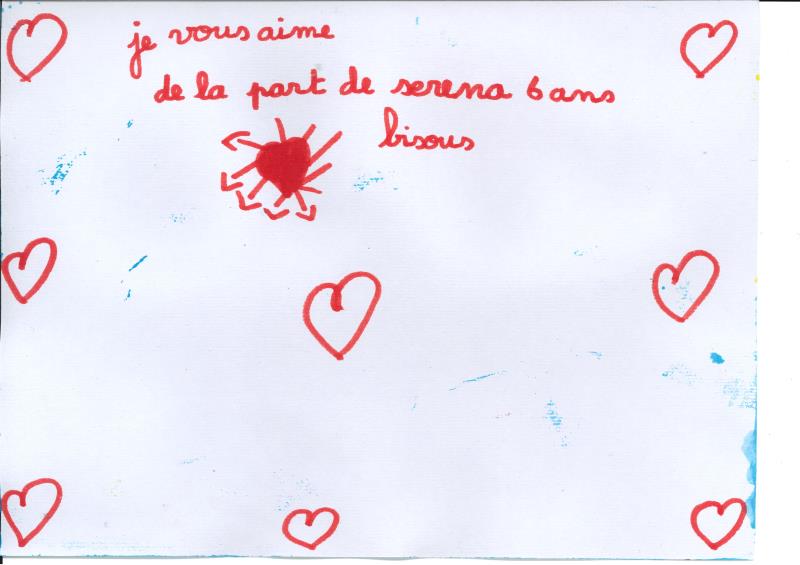 je vous aime
de la part de serena 6 ans
bisous